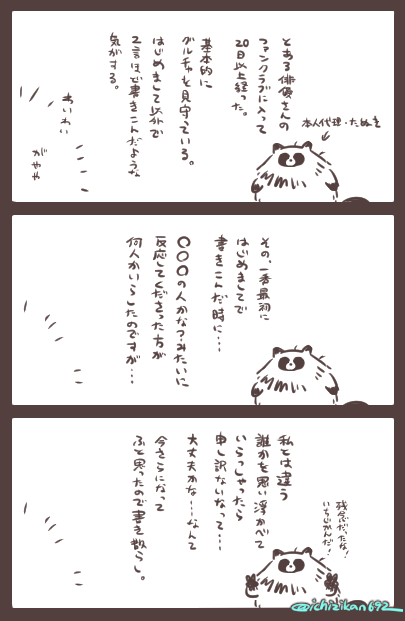 とある俳優さんの
ファンクラブに入って
20日以上経った。
本人代理・たぬき
基本的に
グルチャを見守っている。
はじめまして以外で
2言ほど書きこんだような
気がする。
わいわい
がやや
その、一番最初に
はじめましてで
書きこんだ時に…
〇〇〇の人かな?みたいに
反応してくださった方が
何人かいらしたのですが…
私とは違う
誰かを思い浮かべて
いらっしゃったら
申し訳ないなって…
大丈夫かな…なんて
今さらになって
ふと思ったので書き散らし。
残念だったな!
いちじかんだ!
@ichizikan692